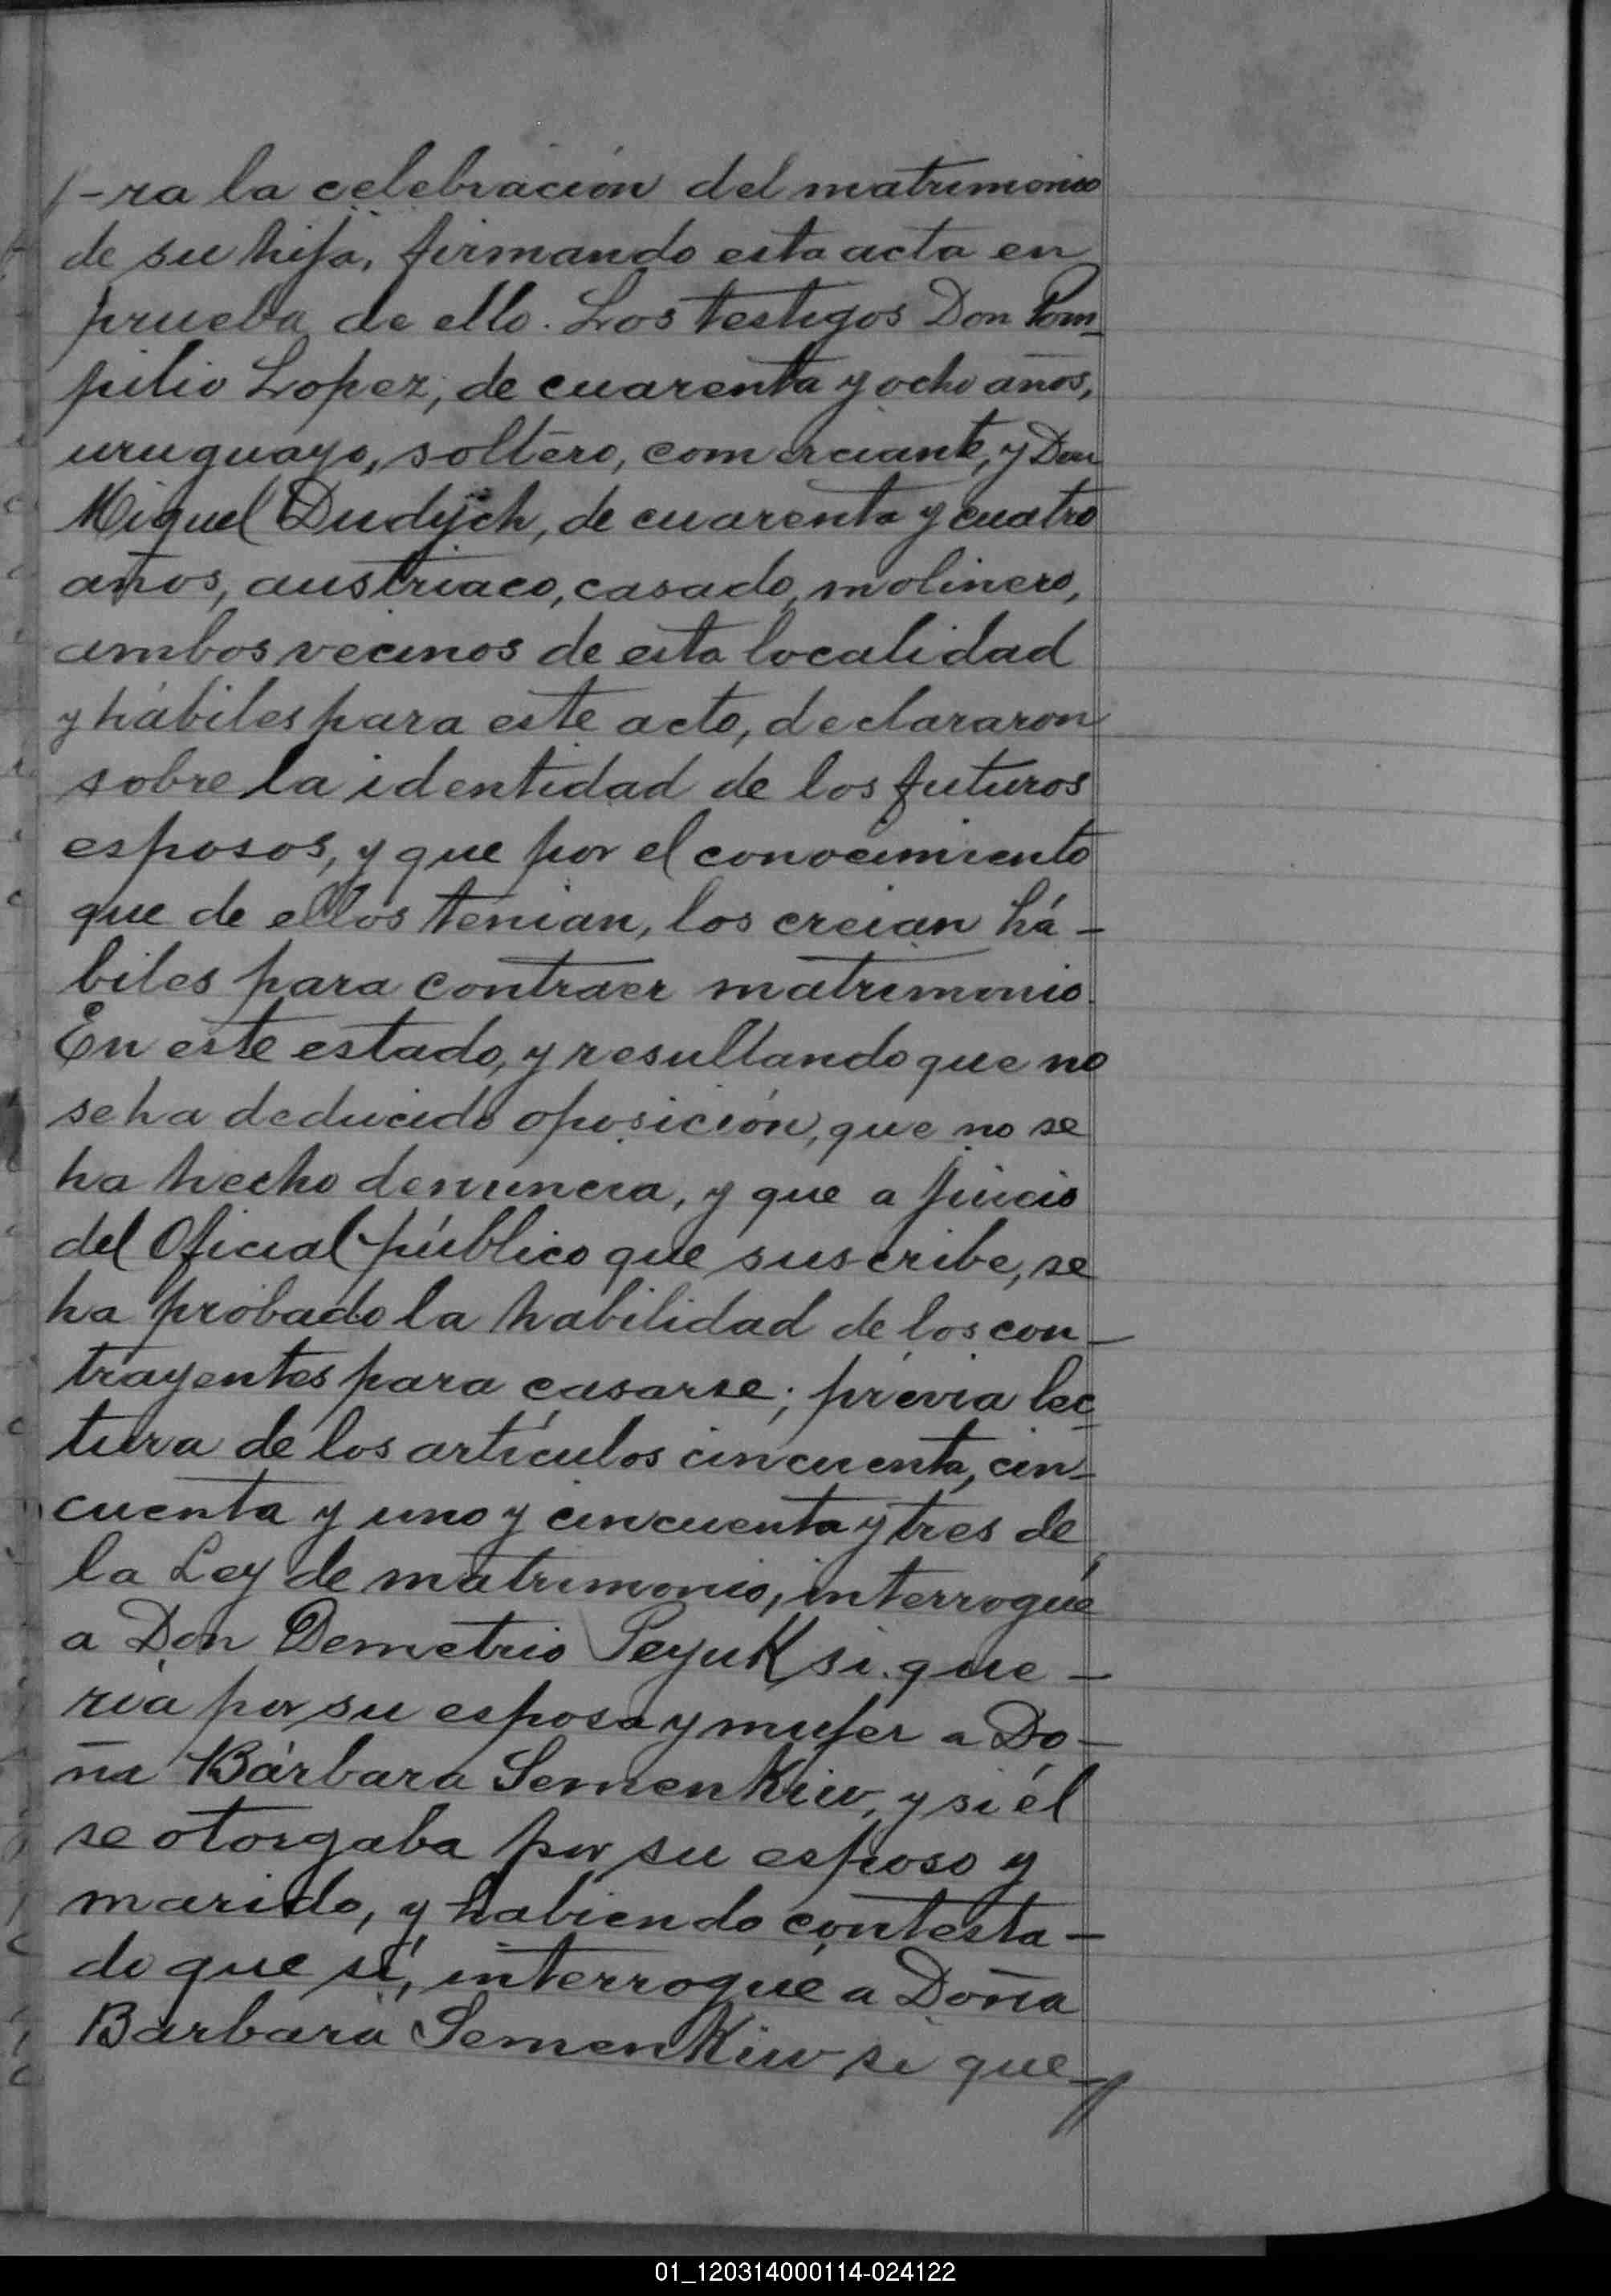 //-ra la celebración del matrimonio
de su hija, firmando esta acta en
prueba de ello. Los testigos Don Pom-
pilio Lopez, de cuarenta y ocho años,
uruguayo, soltero, comerciante, y Don
Miguel Dudych, de cuarenta y cuatro
años, austriaco, casado, molinero,
ambos vecinos de esta localidad
y hábiles para este acto, declararon
sobre la identidad de los futuros
esposos, y que por el conocimiento
que de ellos tenian, los creian há-
biles para contraer matrimonio.
En este estado, y resultando que no
se ha deducido oposición, que no se
ha hecho denuncia, y que a juicio
del Oficial público que suscribe, se
ha probado la habilidad de los con-
trayentes para casarse; prévia lec-
tura de los artículos cincuenta, cin-
cuenta y uno y cincuenta y tres de
la Ley de matrimonio, interrogué
a Don Demetrio PeyuK si que-
ria por su esposa y mujer a Do-
ña Bárbara SemenKiw, y si él
se otorgaba por su esposo y
marido, y habiendo contesta-
do que sí, interrogué a Doña
Barbara SemenKiw si que-//
01_120314000114-024122